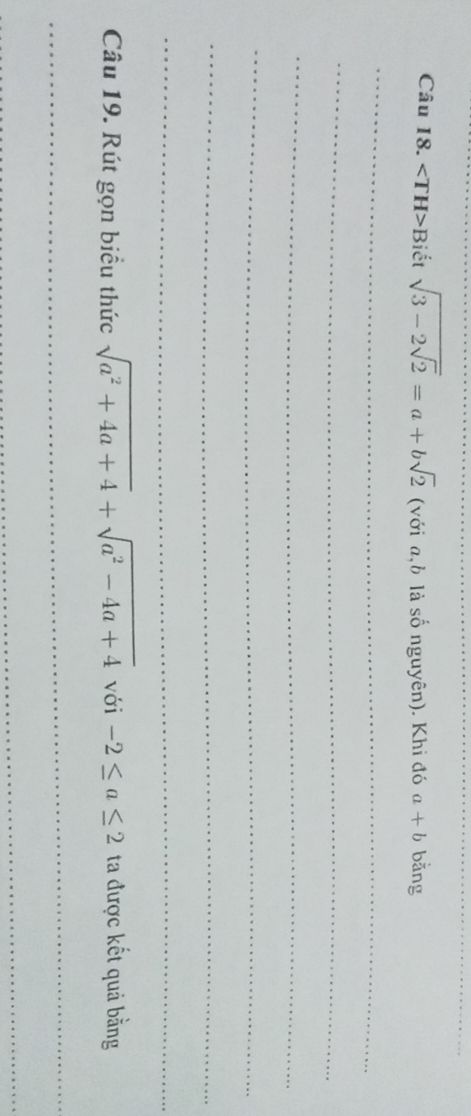 Câu 18. <TH>Biết √(3 − 2√2) = a + b√2 (với a, b là số nguyên). Khi đó a + b bằng
Câu 19. Rút gọn biểu thức √(a² + 4a + 4) + √(a² − 4a + 4) với −2 ≤ a ≤ 2 ta được kết quả bằng